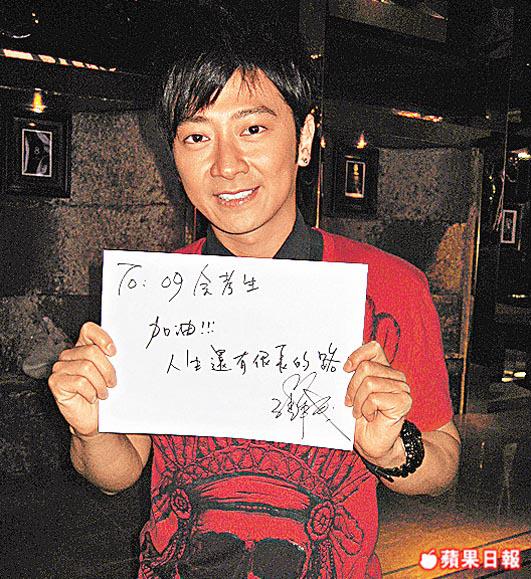 To: 09 会考生
加油!!!
人生還有很長的路
蘋果日報